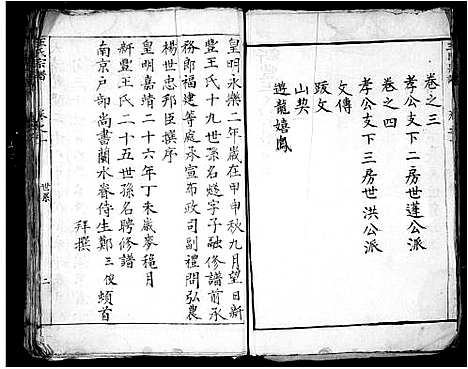 卷之三
孝公支下二房世蓮公派
卷之四
孝公支下三房世洪公派
文傳
跋文
山契
遊龍嬉鳳
皇明永樂二年歲在甲申秋九月望日新
豐王氏十九世孫名燧字子融修譜前承
務郎福建等處承宣布政司副禮問弘農
楊世忠邦臣撰序
皇明嘉靖二十六年丁未歲麥穐月
新豐王氏二十五世孫名聘修譜
南京戶部尚書蘭水眷侍生鄭三俊頓首
拜撰
世系
二